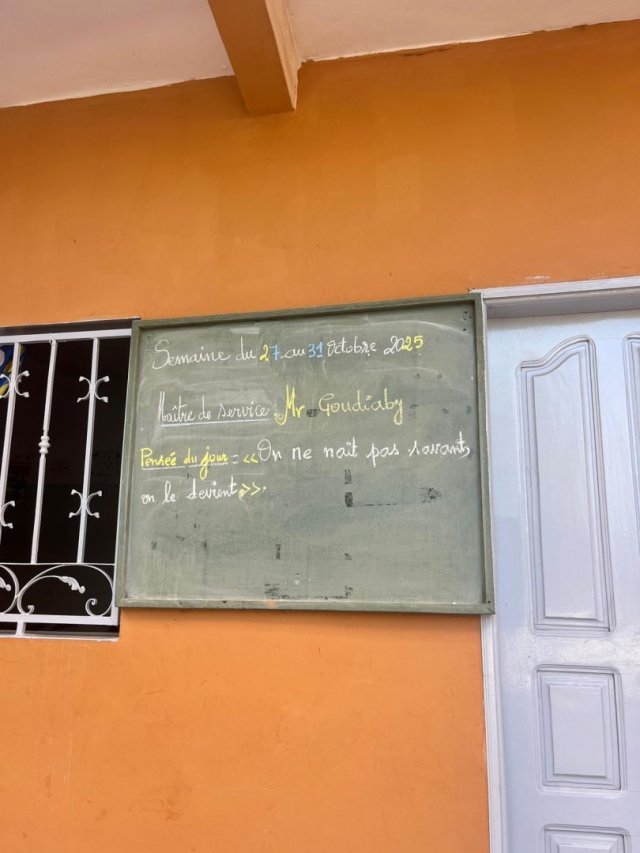 Semaine du 27 au 31 Octobre 2025
Maître de service : Mr Goudiaby
Pensée du jour : «On ne nait pas savant,
on le devient».